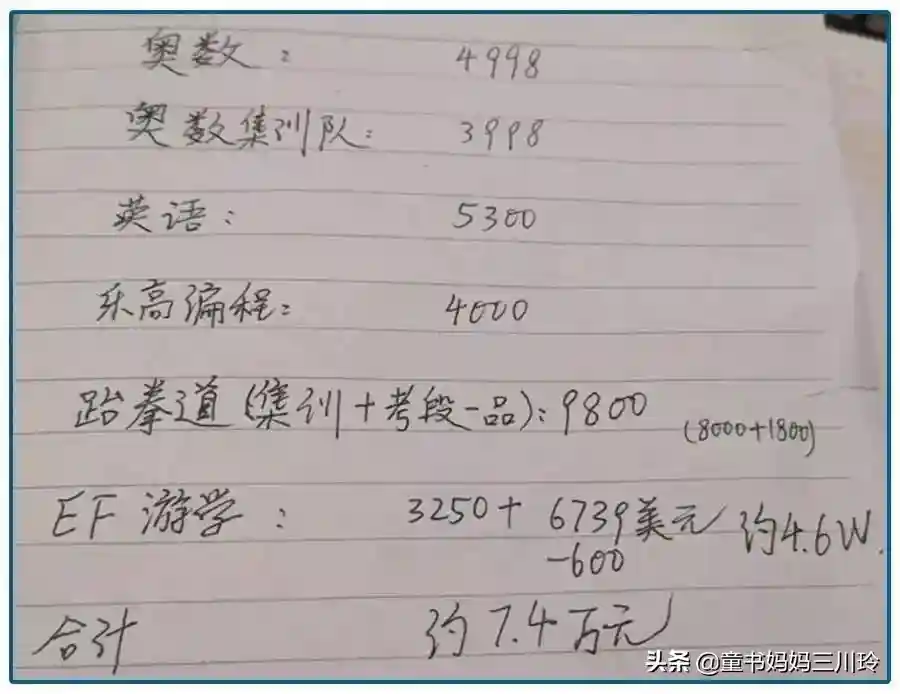 奥数: 4998
奥数集训队: 3998
英语: 5300
乐高编程: 4000
跆拳道(集训+考段一品): 9800
(8000+1800)
EF游学: 3250+6739美元 约4.6W.
-600
合计 约7.4万元
头条 @童书妈妈三川玲